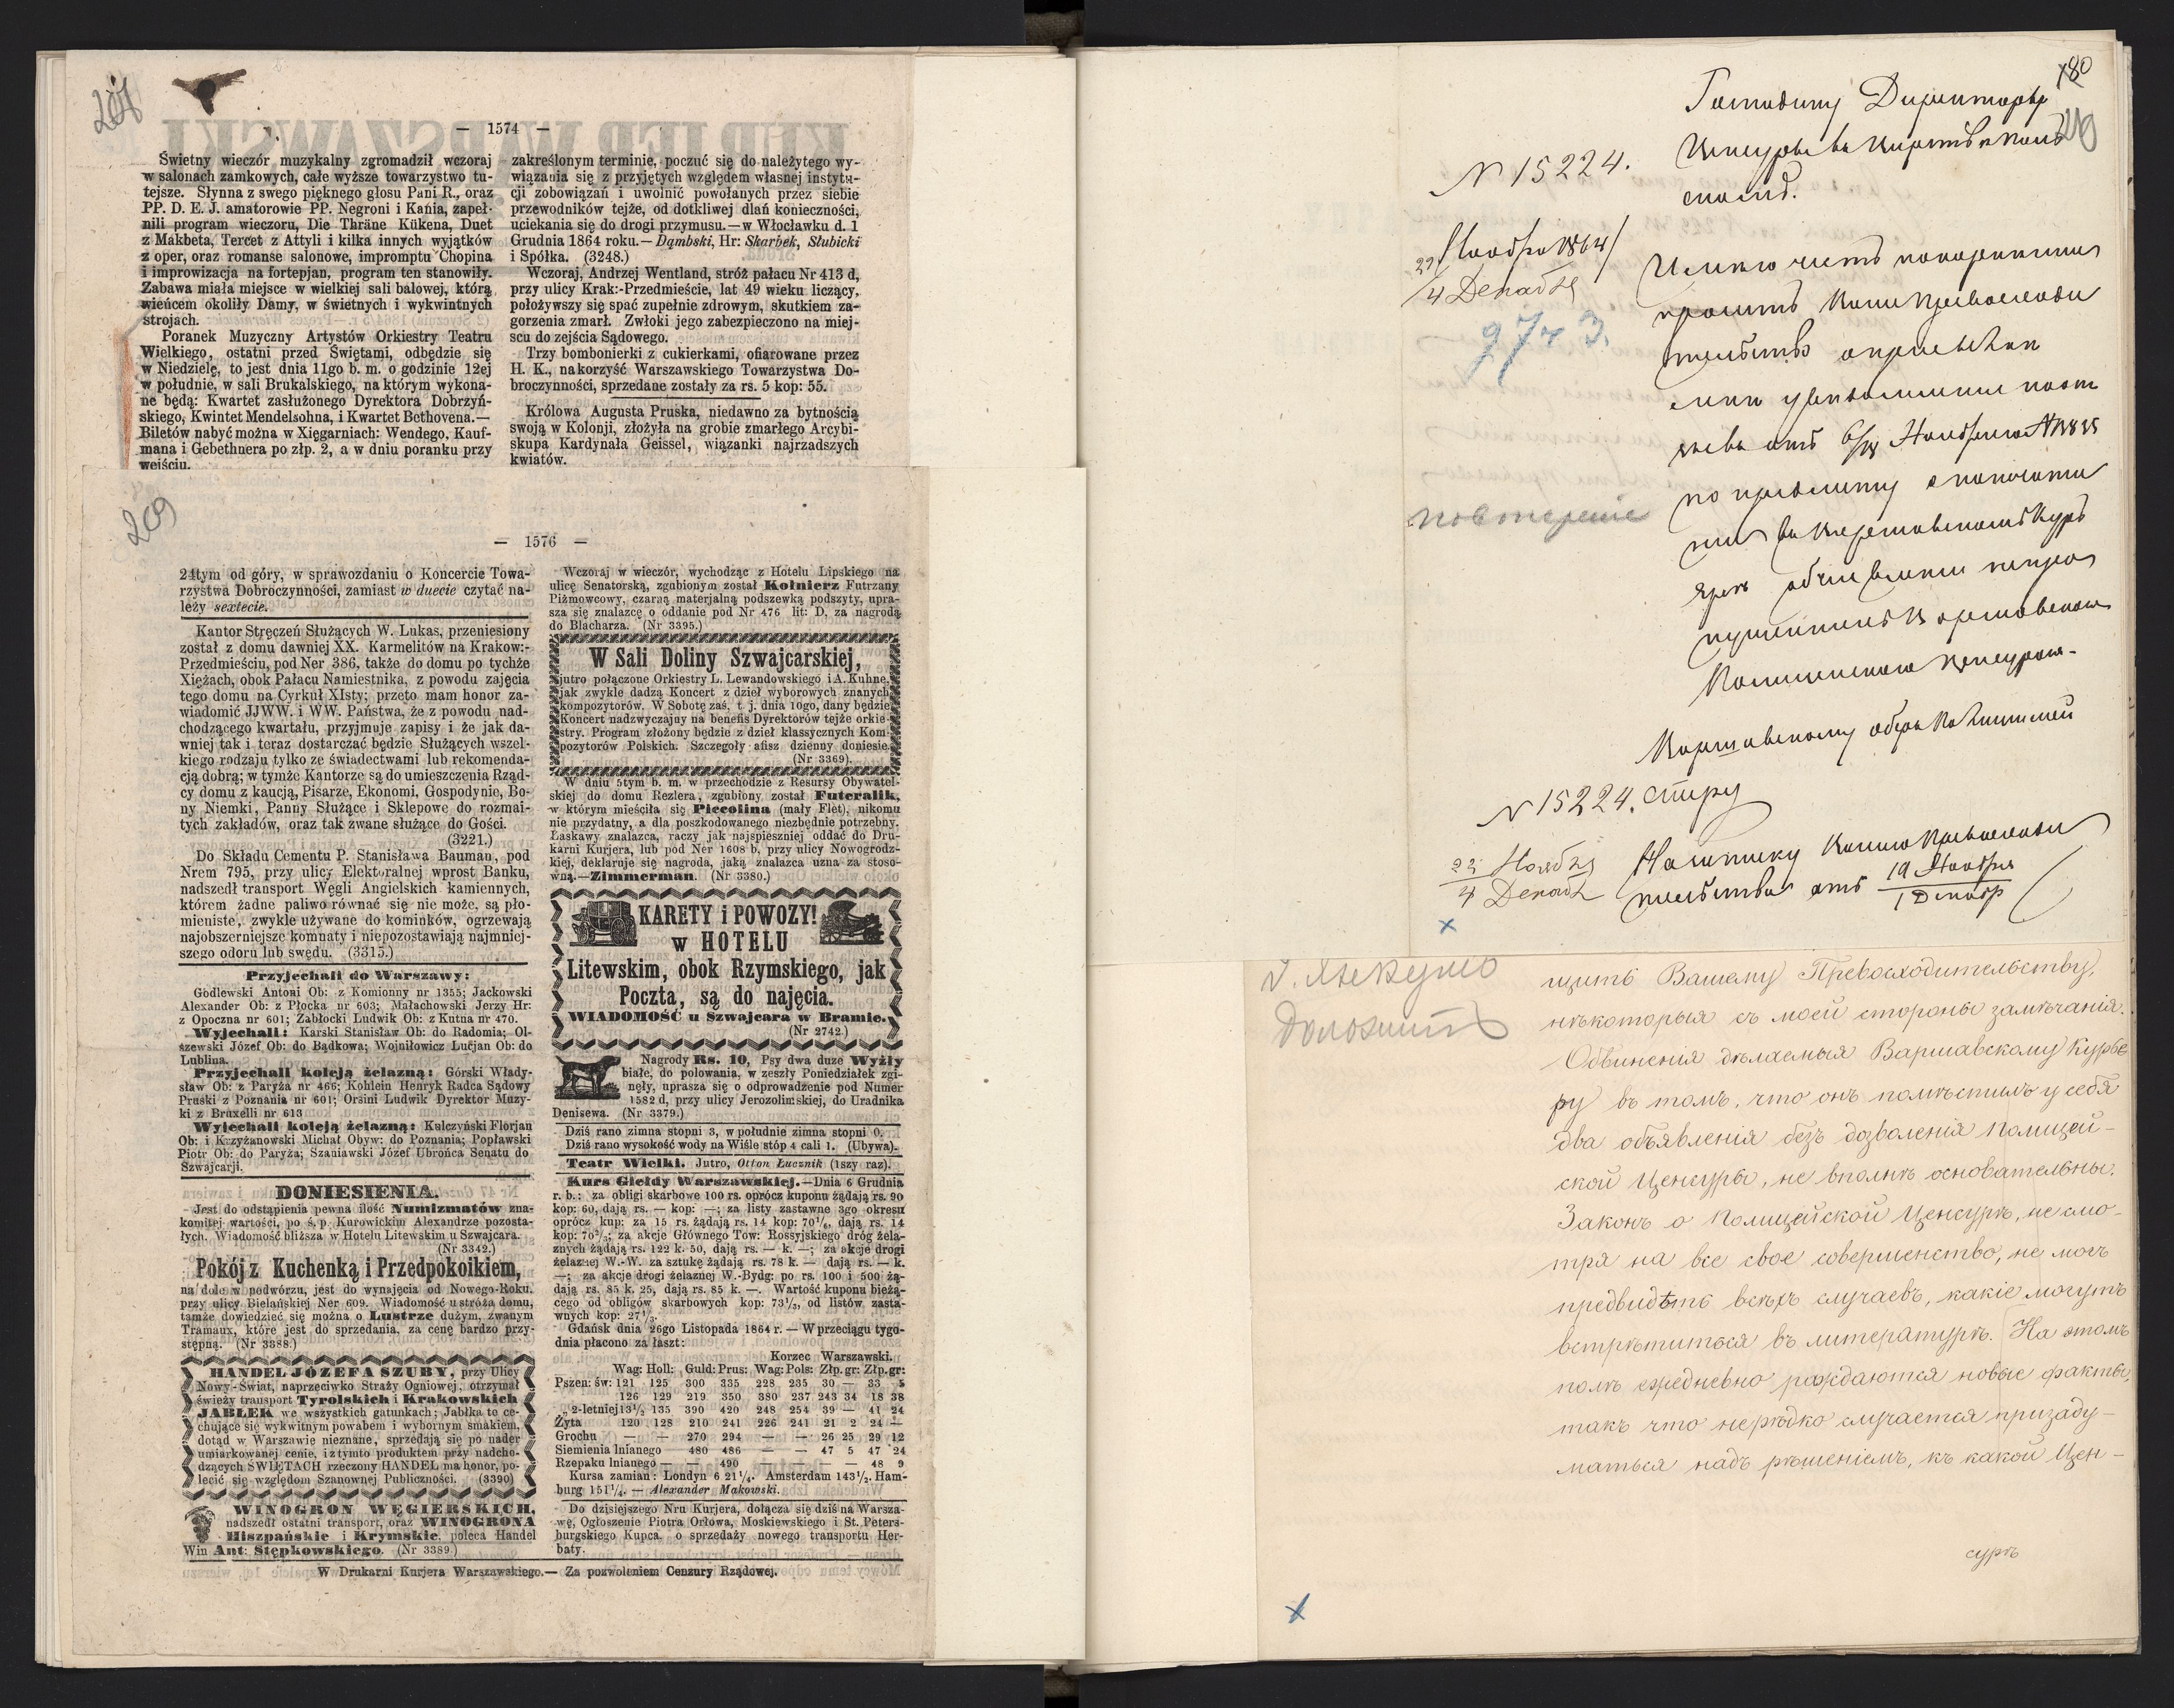 207
— 1574 —
Świetny wieczór muzykalny zgromadził wczoraj
w salonach zamkowych, całe wyższe towarzystwo tu-
tejsze. Słynna z swego pięknego głosu Pani R., oraz
PP. D. E. J. amatorowie PP. Negroni i Kania, zapeł-
nili program wieczoru, Die Thräne Kükena, Duet
z Makbeta, Tercet z Attyli i kilka innych wyjątków
z oper, oraz romanse salonowe, impromptu Chopina
i improwizacja na fortepjan, program ten stanowiły.
Zabawa miała miejsce w wielkiej sali balowej, którą
wieńcem okoliły Damy, w świetnych i wykwintnych
strojach.
Poranek Muzyczny Artystów Orkiestry Teatru
Wielkiego, ostatni przed Świętami, odbędzie się
w Niedzielę, to jest dnia 11go b. m. o godzinie 12ej
w południe, w sali Brukalskiego, na którym wykona-
ne będą: Kwartet zasłużonego Dyrektora Dobrzyń-
skiego, Kwintet Mendelsohna, i Kwartet Bethovena.—
Biletów nabyć można w Xięgarniach: Wendego, Kauf-
mana i Gebethnera po złp. 2, a w dniu poranku przy
wejściu.
zakreślonym terminie, poczuć się do należytego wy-
wiązania się z przyjętych względem własnej instytu-
cji zobowiązań i uwolnić powołanych przez siebie
przewodników tejże, od dotkliwej dlań konieczności,
uciekania się do drogi przymusu.— w Włocławku d. 1
Grudnia 1864 roku.— Dąmbski, Hr: Skarbek, Słubicki
i Spółka. (3248.)
Wczoraj, Andrzej Wentland, stróż pałacu Nr 413 d,
przy ulicy Krak:-Przedmieście, lat 49 wieku liczący,
położywszy się spać zupełnie zdrowym, skutkiem za-
gorzenia zmarł. Zwłoki jego zabezpieczono na miej-
scu do zejścia Sądowego.
Trzy bombonierki z cukierkami, ofiarowane przez
H. K., na korzyść Warszawskiego Towarzystwa Do-
broczynności, sprzedane zostały za rs. 5 kop: 55.
Królowa Augusta Pruska, niedawno za bytnością
swoją w Kolonji, złożyła na grobie zmarłego Arcybi-
skupa Kardynała Geissel, wiązanki najrzadszych
kwiatów.
209
— 1576 —
24tym od góry, w sprawozdaniu o Koncercie Towa-
rzystwa Dobroczynności, zamiast w duecie czytać na-
leży sextecie.
Kantor Stręczeń Służących W. Lukas, przeniesiony
został z domu dawniej XX. Karmelitów na Krakow:-
Przedmieściu, pod Ner 386, także do domu po tychże
Xiężach, obok Pałacu Namiestnika, z powodu zajęcia
tego domu na Cyrkuł XIsty; przeto mam honor za-
wiadomić JJWW. i WW. Państwa, że z powodu nad-
chodzącego kwartału, przyjmuje zapisy i że jak da-
wniej tak i teraz dostarczać będzie Służących wszel-
kiego rodzaju tylko ze świadectwami lub rekomenda-
cją dobrą; w tymże Kantorze są do umieszczenia Rząd-
cy domu z kaucją, Pisarze, Ekonomi, Gospodynie, Bo-
ny Niemki, Panny Służące i Sklepowe do rozmai-
tych zakładów, oraz tak zwane służące do Gości.
(3221.)
Do Składu Cementu P. Stanisława Bauman, pod
Nrem 795, przy ulicy Elektoralnej wprost Banku,
nadszedł transport Węgli Angielskich kamiennych,
którem żadne paliwo równać się nie może, są pło-
mieniste, zwykle używane do kominków, ogrzewają
najobszerniejsze komnaty i niepozostawiają najmniej-
szego odoru lub swędu. (3315.)
Przyjechali do Warszawy:
Godlewski Antoni Ob: z Komionny nr 1355; Jackowski
Alexander Ob: z Płocka nr 603; Małachowski Jerzy Hr:
z Opoczna nr 601; Zabłocki Ludwik Ob: z Kutna nr 470.
Wyjechali: Karski Stanisław Ob: do Radomia; Ol-
szewski Józef Ob: do Bądkowa; Wojniłowicz Lucjan Ob: do
Lublina.
Przyjechali koleją żelazną: Górski Włady-
sław Ob: z Paryża nr 466; Kohlein Henryk Radca Sądowy
Pruski z Poznania nr 601; Orsini Ludwik Dyrektor Muzy-
ki z Bruxelli nr 613
Wyjechali koleją żelazną: Kulczyński Florjan
Ob: i Krzyżanowski Michał Obyw: do Poznania; Popławski
Piotr Ob: do Paryża; Szaniawski Józef Obrońca Senatu do
Szwajcarji.
DONIESIENIA.
Jest do odstąpienia pewna ilość Numizmatów zna-
komitej wartości, po ś. p. Kurowickim Alexandrze pozosta-
łych. Wiadomość bliższa w Hotelu Litewskim u Szwajcara.
(Nr 3342.)
Pokój z Kuchenką i Przedpokoikiem,
na dole w podwórzu, jest do wynajęcia od Nowego-Roku,
przy ulicy Bielańskiej Ner 609. Wiadomość u stróża domu,
tamże dowiedzieć się można o Lustrze dużym, zwanym
Tramaux, które jest do sprzedania, za cenę bardzo przy-
stępną. (Nr 3388.)
HANDEL JÓZEFA SZUBY, przy Ulicy
Nowy-Świat, naprzeciwko Straży Ogniowej, otrzymał
świeży transport Tyrolskich i Krakowskich
JABŁEK we wszystkich gatunkach; Jabłka te ce-
chujące się wykwitnym powabem i wybornym smakiem,
dotąd w Warszawie nieznane, sprzedają się po nader
umiarkowanej cenie, i z tymto produktem przy nadcho-
dzących ŚWIĘTACH rzeczony HANDEL ma honor, po-
lecić się względom Szanownej Publiczności. (3390)
WINOGRON WĘGIERSKICH,
nadszedł ostatni transport, oraz WINOGRONA
Hiszpańskie i Krymskie, poleca Handel
Win Ant: Stępkowskiego. (Nr 3389.)
Wczoraj w wieczór, wychodząc z Hotelu Lipskiego na
ulicę Senatorską, zgubionym został Kołnierz Futrzany
Piżmowcowy, czarną materjalną podszewką podszyty, upra-
sza się znalazcę o oddanie pod Nr 476 lit: D, za nagrodą
do Blacharza. (Nr 3395.)
W Sali Doliny Szwajcarskiej,
jutro połączone Orkiestry L. Lewandowskiego i A. Kuhne,
jak zwykle dadzą Koncert z dzieł wyborowych znanych
kompozytorów. W Sobotę zaś, t. j. dnia 10go, dany będzie
Koncert nadzwyczajny na benefis Dyrektorów tejże orkie-
stry. Program złożony będzie z dzieł klassycznych Kom-
pozytorów Polskich. Szczegóły afisz dzienny doniesie.
(Nr 3369).
W dniu 5tym b. m. w przechodzie z Resursy Obywatel-
skiej do domu Rezlera, zgubiony został Futeralik,
w którym mieściła się Piccolina (mały Flet), nikomu
nie przydatny, a dla poszkodowanego niezbędnie potrzebny.
Łaskawy znalazca, raczy jak najspieszniej oddać do Dru-
karni Kurjera, lub pod Ner 1608 b, przy ulicy Nowogrodz-
kiej, deklaruje się nagroda, jaką znalazca uzna za stoso-
wną.—Zimmerman. (Nr 3380.)
KARETY i POWOZY!
w HOTELU
Litewskim, obok Rzymskiego, jak
Poczta, są do najęcia.
WIADOMOŚĆ u Szwajcara w Bramie.
(Nr 2742.)
Nagrody Rs. 10, Psy dwa duże Wyżły
białe, do polowania, w zeszły Poniedziałek zgi-
nęły, uprasza się o odprowadzenie pod Numer
1582 d, przy ulicy Jerozolimskiej, do Uradnika
Denisewa. (Nr 3379.)
Dziś rano zimna stopni 3, w południe zimna stopni 0.
Dziś rano wysokość wody na Wiśle stóp 4 cali 1. (Ubywa).
Teatr Wielki. Jutro, Otton Łucznik (1szy raz).
Kurs Giełdy Warszawskiej.—Dnia 6 Grudnia
r. b.: za obligi skarbowe 100 rs. oprócz kuponu żądają rs. 90
kop: 60, dają rs. — kop: —; za listy zastawne 3go okresu
oprócz kup: za 15 rs. żądają rs. 14 kop: 70¹/₆, dają rs. 14
kop: 70²/₃; za akcje Głównego Tow: Rossyjskiego dróg żela-
znych żądają rs. 122 k. 50, dają rs. — k. —; za akcje drogi
żelaznej W.-W. za sztukę żądają rs. 78 k. — dają rs. — k.
—; za akcje drogi żelaznej W.-Bydg: po rs. 100 i 500 żą-
dają rs. 85 k. 25, dają rs. 85 k. —. Wartość kuponu bieżą-
cego od obligów skarbowych kop: 73¹/₃, od listów zasta-
wnych kop: 27¹/₃.
Gdańsk dnia 26go Listopada 1864 r. — W przeciągu tygo-
dnia płacono za łaszt:
Korzec Warszawski.
Wag: Holl: Guld: Prus: Wag: Pols: Złp. gr: Złp. gr:
Pszen: św: 121 125 300 335 228 235 30 — 33 5
126 129 219 350 380 237 243 34 18 38
„ 2-letniej 13¹/₂ 135 390 420 248 254 39 — 41 24
Żyta 120 128 210 241 226 241 21 2 24 —
Grochu — — 270 294 — — 26 25 29 12
Siemienia lnianego 480 486 — — 47 5 47 24
Rzepaku lnianego — — 490 — — — — 48 9
Kursa zamian: Londyn 6 21¹/₄. Amsterdam 143¹/₂. Ham-
burg 151¹/₄. — Alexander Makowski.
Do dzisiejszego Nru Kurjera, dołącza się dziś na Warsza-
wę, Ogłoszenie Piotra Orłowa, Moskiewskiego i St. Peters-
burgskiego Kupca, o sprzedaży nowego transportu Her-
baty.
W Drukarni Kurjera Warszawskiego.— Za pozwoleniem Cenzury Rządowej.
180
Господину Директору
Цензуры въ Царствѣ Поль
скомъ.
N 15224.
22/Ноября 1864/
4 Декабя
9743.
Имѣю честь покорнѣйше
просить Ваше Превосходи
тельство
увѣдомленіемъ
Ноября
повтореніе
Варшавскомъ Курь
ерѣ объявленія
Варшавскому Оберъ Полиціймей
N 15224. стеру
22 Ноября
4 Декаб
На отписку Вашего Превосходи
тельства отъ 19 Ноября
1 Декабр
г. Янкулю
Доложить
щить Вашему Превосходительству,
нѣкоторыя съ моей стороны замѣчанія.
Обвиненія дѣлаемыя Варшавскому Курье
ру въ томъ, что онъ помѣстилъ у себя
два объявленія безъ дозволенія Полицей-
ской Цензуры, не вполнѣ основательны.
Законъ о Полицейской Цензурѣ, не смо-
тря на все свое совершенство, не могъ
предвидѣть всѣхъ случаевъ, какіе могутъ
встрѣтиться въ литературѣ. На этомъ
полѣ ежедневно рождаются новые факты,
такъ что нерѣдко случается призаду-
маться надъ рѣшеніемъ, къ какой Цен-
сурѣ